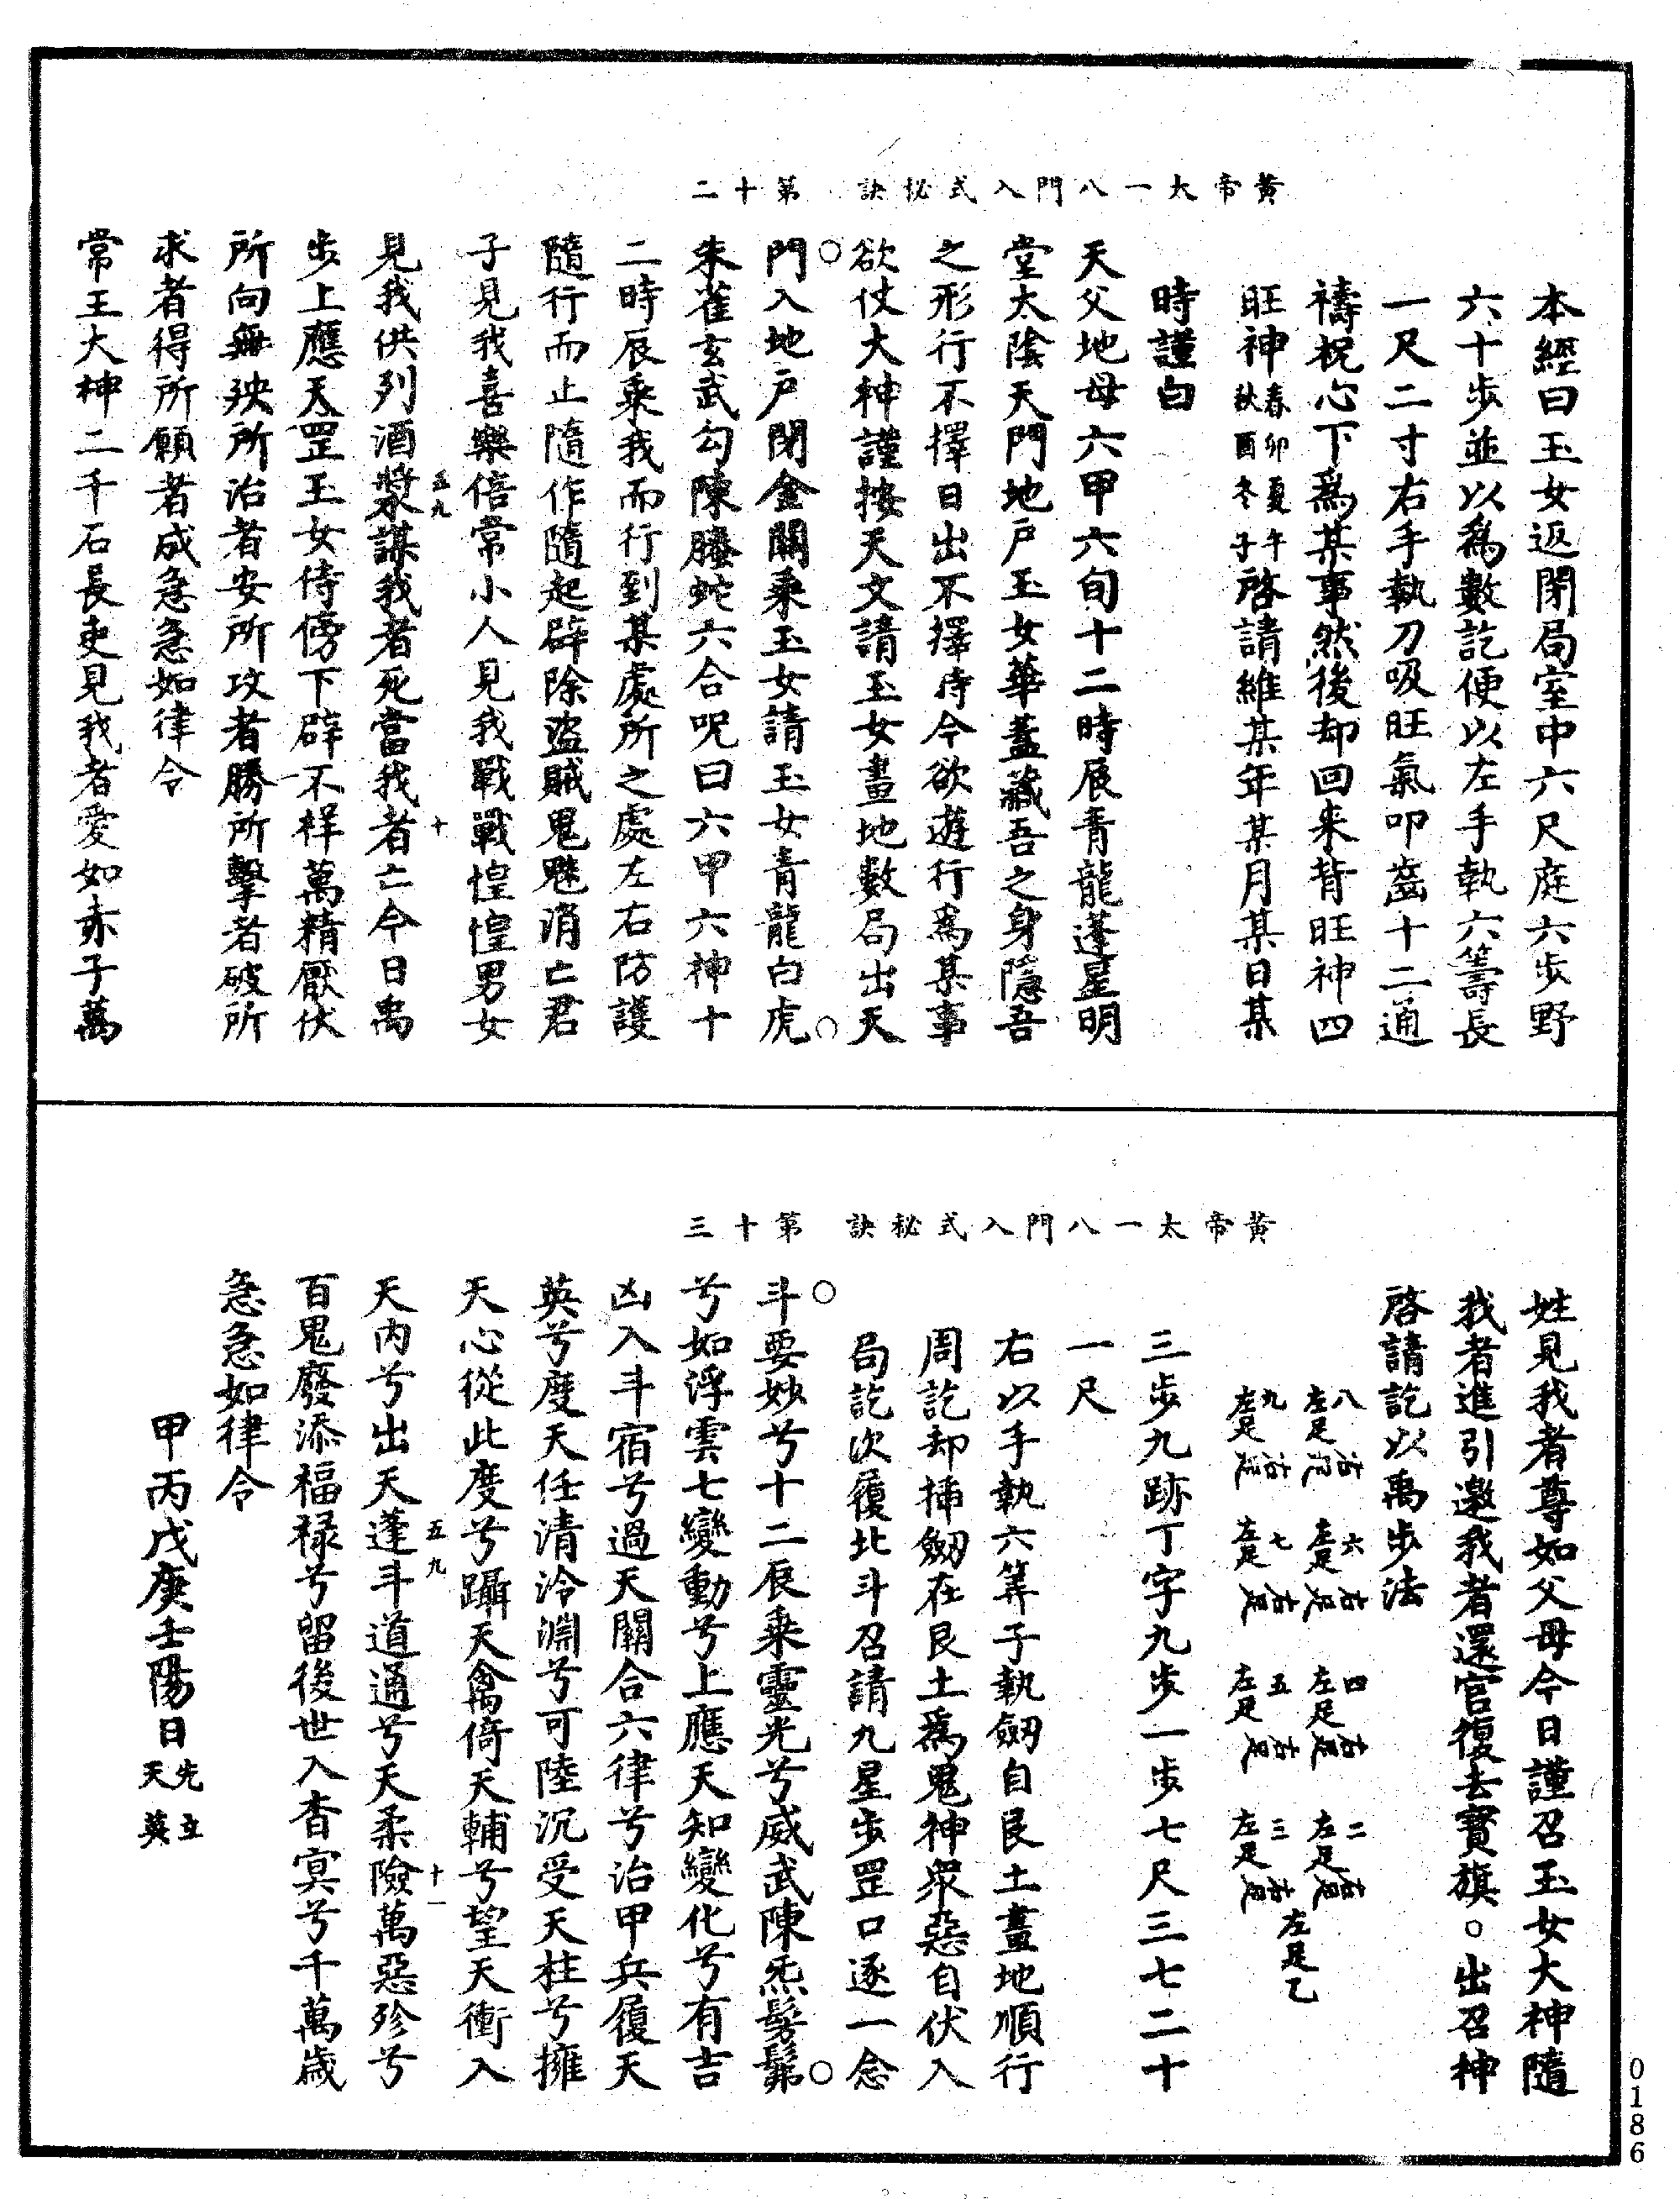 黃帝太一八門入式祕訣　第十二
本經曰玉女返閉局室中六尺庭六步野
六十步並以為數訖便以左手執六籌長
一尺二寸右手執刀吸旺氣叩齒十二通
禱祝心下為某事然後却回來背旺神四
旺神春卯夏午秋酉冬子啓請維某年某月某日某
時謹白
天父地母六甲六旬十二時辰青龍蓬星明
堂太陰天門地戶玉女華蓋蓋藏吾之身隱吾
之形行不擇日出不擇時今欲遊行為某事
欲仗大神謹按天文請玉女畫地數局出天
門入地戶閉金關乘玉女請玉女青龍白虎
朱雀玄武勾陳螣蛇六合呪曰六甲六神十
二時辰乘我而行到某處所之處左右防護
隨行而止隨作隨起辟除盜賊鬼魅消亡君
子見我喜樂倍常小人見我戰戰惶惶男女
見我供列酒漿謀我者死當我者亡今日禹
五九
十
步上應天罡玉女侍傍下辟不祥萬精厭伏
所向無殃所治者安所攻者勝所擊者破所
求者得所願者成急急如律令
常王大神二千石長吏見我者愛如赤子萬
黃帝太一八門入式祕訣　第十三
姓見我者尊如父母今日謹召玉女大神隨
我者進引邀我者還官復去寶旗。出召神
啓請訖以禹步法
八左足右足　六左足右足　四左足右足　二左足右足
左足乙
九左足右足　七左足右足　五左足右足　三左足右足
三步九跡丁字九步一步七尺三七二十
一尺
右以手執六筭子執劒自艮土畫地順行
周訖却揷劒在艮土為鬼神眾惡自伏入
局訖次履北斗召請九星步罡口逐一念
斗要妙兮十二辰乘靈光兮威武陳炁髣髴
兮如浮雲七變動兮上應天知變化兮有吉
凶入斗宿兮過天關合六律兮治甲兵履天
英兮度天任清泠淵兮可陸沉受天柱兮擁
天心從此度兮躡天禽倚天輔兮望天衝入
天內兮出天蓬斗道通兮天柔險萬惡殄兮
五九
十一
百鬼廢添福祿兮留後世入杳冥兮千萬歲
急急如律令
甲丙戊庚壬陽日先立天英
0186